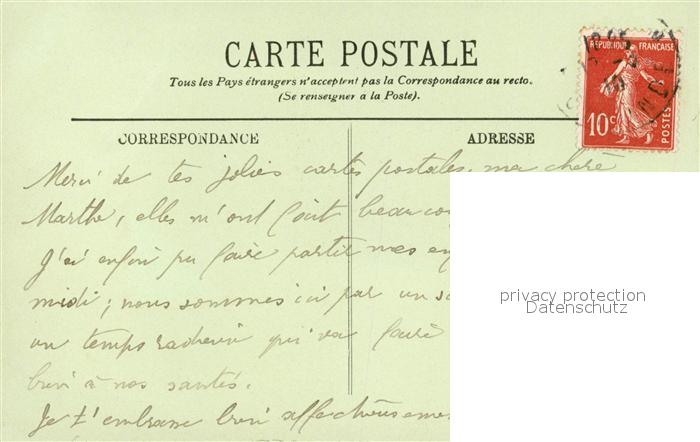 CARTE POSTALE
Tous les Pays étrangers n'acceptent pas la Correspondance au recto.
(Se renseigner à la Poste).
RÉPUBLIQUE FRANÇAISE
10c
POSTES
CORRESPONDANCE
ADRESSE
Merci de tes jolies cartes postales, ma chère
Marthe, elles m'ont fait
J'ai enfin pu faire partir mes
midi; nous sommes ici par un
un temps qui va faire
à nos santés.
Je t'embrasse bien
privacy protection
Datenschutz